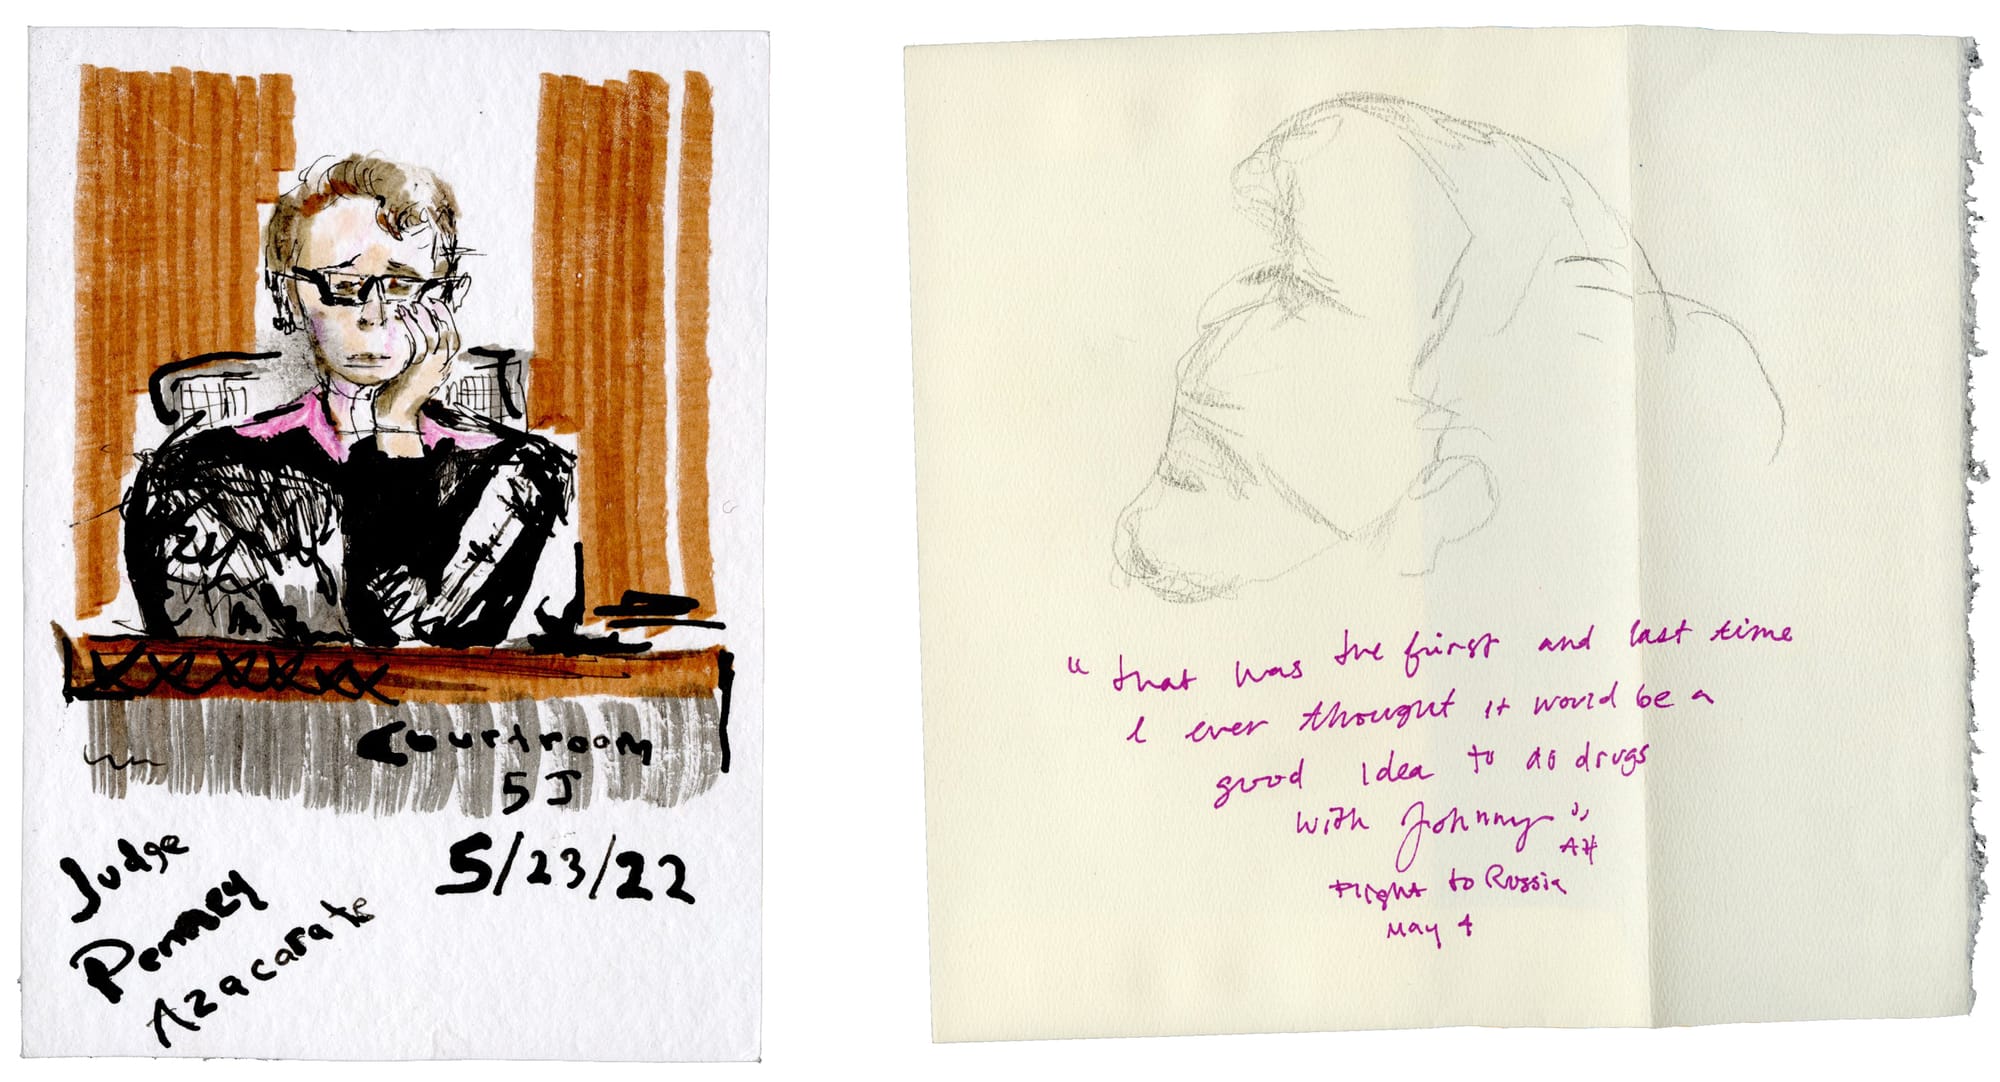 Courtroom
5J
5/23/22
Judge
Penney
Azacarate
"that was the first and last time
I ever thought it would be a
good idea to do drugs
with Johnny"
AH
Flight to Russia
May 4